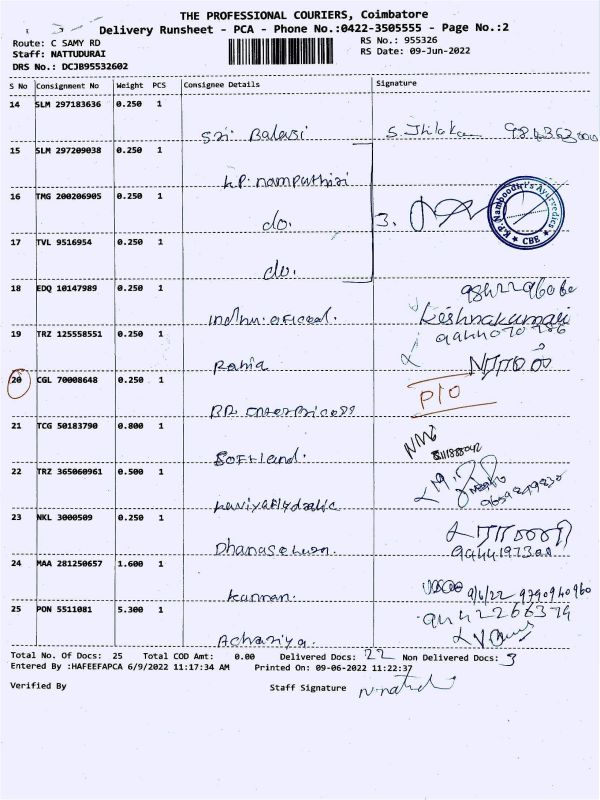 THE PROFESSIONAL COURIERS, Coimbatore
Delivery Runsheet - PCA - Phone No.:0422-3505555 - Page No.:2
Route: C SAMY RD
RS No.: 955326
Staff: NATTUDURAI
RS Date: 09-Jun-2022
DRS No.: DCJB95532602
S No Consignment No Weight PCS Consignee Details Signature
14 SLM 297183636 0.250 1
Sri Balaji
15 SLM 297209038 0.250 1
k.P. namputhiri
16 TMG 200206905 0.250 1
do. 3.
K.P. Namboodiri's Ayurvedics
★ CBE ★
17 TVL 9516954 0.250 1
do.
18 EDQ 10147989 0.250 1
Krishnakumari
19 TRZ 125558551 0.250 1
20 CGL 70008648 0.250 1
P10
BR Enterprices
21 TCG 50183790 0.800 1
Softland.
22 TRZ 365060961 0.500 1
23 NKL 3000509 0.250 1
24 MAA 281250657 1.600 1
kannan. 9/6/22 9790940960
25 PON 5511081 5.300 1
9442266374
Achariya.
Total No. Of Docs: 25 Total COD Amt: 0.00 Delivered Docs: 22 Non Delivered Docs: 3
Entered By :HAFEEFAPCA 6/9/2022 11:17:34 AM Printed On: 09-06-2022 11:22:37
Verified By Staff Signature